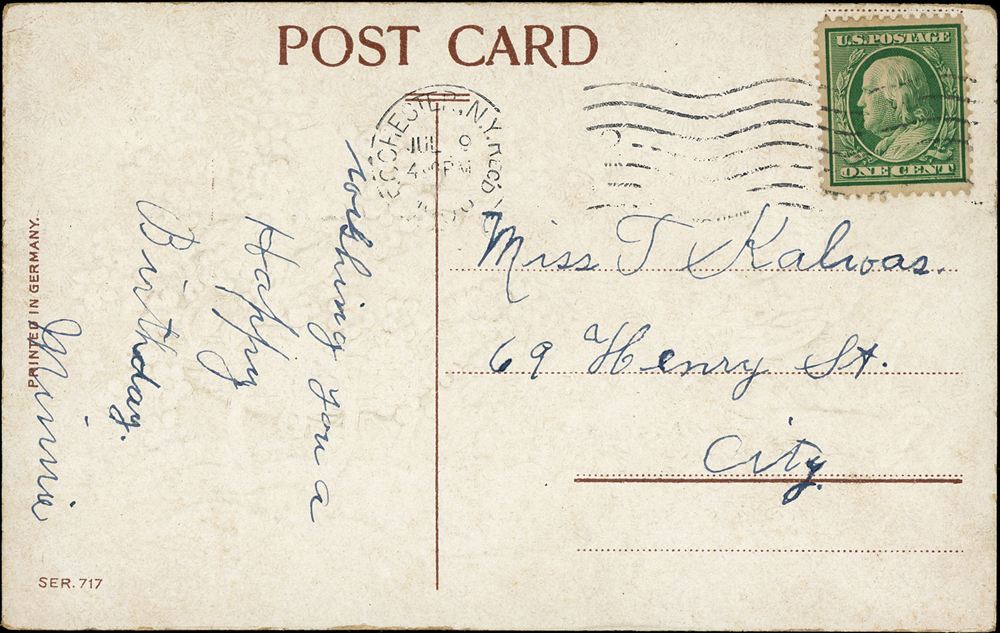 POST CARD
U.S. POSTAGE
ONE CENT
ROCHESTER, N.Y. REC'D
JUL 9
PM
Wishing you a
Happy
Birthday.
Minnie
Miss T Kalwas.
69 Henry St.
City.
PRINTED IN GERMANY.
SER. 717